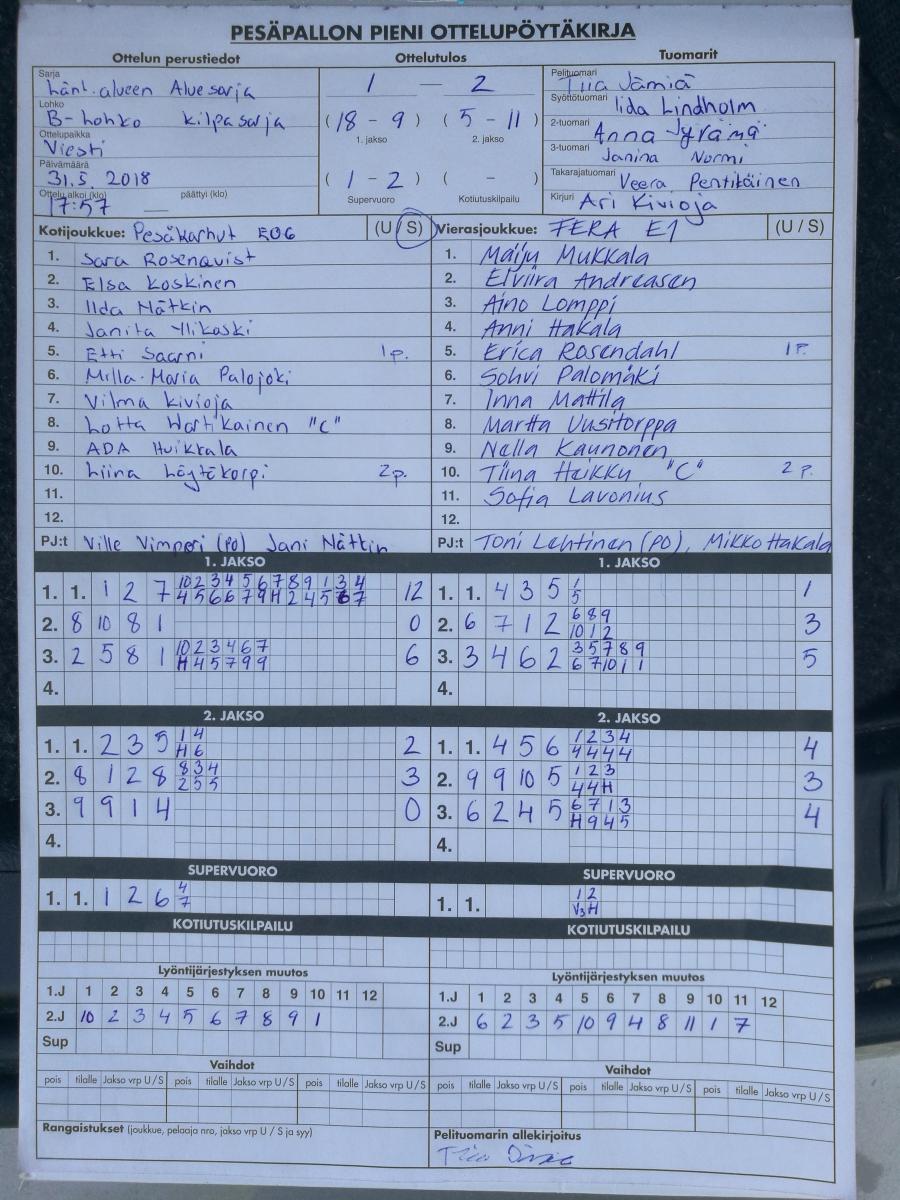 PESÄPALLON PIENI OTTELUPÖYTÄKIRJA
Ottelun perustiedot Ottelutulos Tuomarit
Sarja Länt. alueen Aluesarja
Lohko B-Lohko kilpasarja
Ottelupaikka Viesti
Päivämäärä 31.5. 2018
Ottelu alkoi (klo) 17:57 päättyi (klo) —
1 — 2
(18 - 9) (5 - 11)
1. jakso 2. jakso
(1 - 2) ( - )
Supervuoro Kotiutuskilpailu
Pelituomari Tiia Jämiä
Syöttötuomari Iida Lindholm
2-tuomari Anna Jyrämä
3-tuomari Janina Normi
Takarajatuomari Veera Pentikäinen
Kirjuri Ari Kivioja
Kotijoukkue: Pesäkarhut E06 (U / S)
1. Sara Rosenqvist
2. Elsa Koskinen
3. Ilda Nätkin
4. Janita Ylikoski
5. Etti Saarni 1p.
6. Milla-Maria Palojoki
7. Vilma Kivioja
8. Lotta Wartikainen "C"
9. ADA Huikkala
10. Liina Löytökorpi 2p.
11.
12.
PJ:t Ville Vimpari (PO) Jani Nättin
Vierasjoukkue: FERA E1 (U / S)
1. Maiju Mukkala
2. Elviira Andreasen
3. Aino Lomppi
4. Anni Hakala
5. Erica Rosendahl 1P.
6. Sohvi Palomäki
7. Inna Mattila
8. Martta Uusitorppa
9. Nella Kaunonen
10. Tiina Heikku "C" 2P.
11. Sofia Lavonius
12.
PJ:t Toni Lehtinen (PO), Mikko Hakala
1. JAKSO
1. 1. 1 2 7 10 2 3 4 5 6 7 8 9 1 3 4 12
4 5 6 6 7 9 H 2 4 5 6 7
2. 8 10 8 1 0
3. 2 5 8 1 10 2 3 4 6 7 6
H 4 5 7 9 9
4.
1. JAKSO
1. 1. 4 3 5 1 1
5
2. 6 7 1 2 6 8 9 3
10 1 2
3. 3 4 6 2 3 5 7 8 9 5
6 7 10 1 1
4.
2. JAKSO
1. 1. 2 3 5 1 4 2
H 6
2. 8 1 2 8 8 3 4 3
2 5 5
3. 9 9 1 4 0
4.
2. JAKSO
1. 1. 4 5 6 1 2 3 4 4
4 4 4 4
2. 9 9 10 5 1 2 3 3
4 4 H
3. 6 2 4 5 6 7 1 3 4
H 9 4 5
4.
SUPERVUORO
1. 1. 1 2 6 4
7
SUPERVUORO
1. 1. 1 2
V3 H
KOTIUTUSKILPAILU
KOTIUTUSKILPAILU
Lyöntijärjestyksen muutos
1.J 1 2 3 4 5 6 7 8 9 10 11 12
2.J 10 2 3 4 5 6 7 8 9 1
Sup
Lyöntijärjestyksen muutos
1.J 1 2 3 4 5 6 7 8 9 10 11 12
2.J 6 2 3 5 10 9 4 8 11 1 7
Sup
Vaihdot
pois tilalle Jakso vrp U / S pois tilalle Jakso vrp U / S pois tilalle Jakso vrp U / S
Vaihdot
pois tilalle Jakso vrp U / S pois tilalle Jakso vrp U / S pois tilalle Jakso vrp U / S
Rangaistukset (joukkue, pelaaja nro, jakso vrp U / S ja syy)
Pelituomarin allekirjoitus